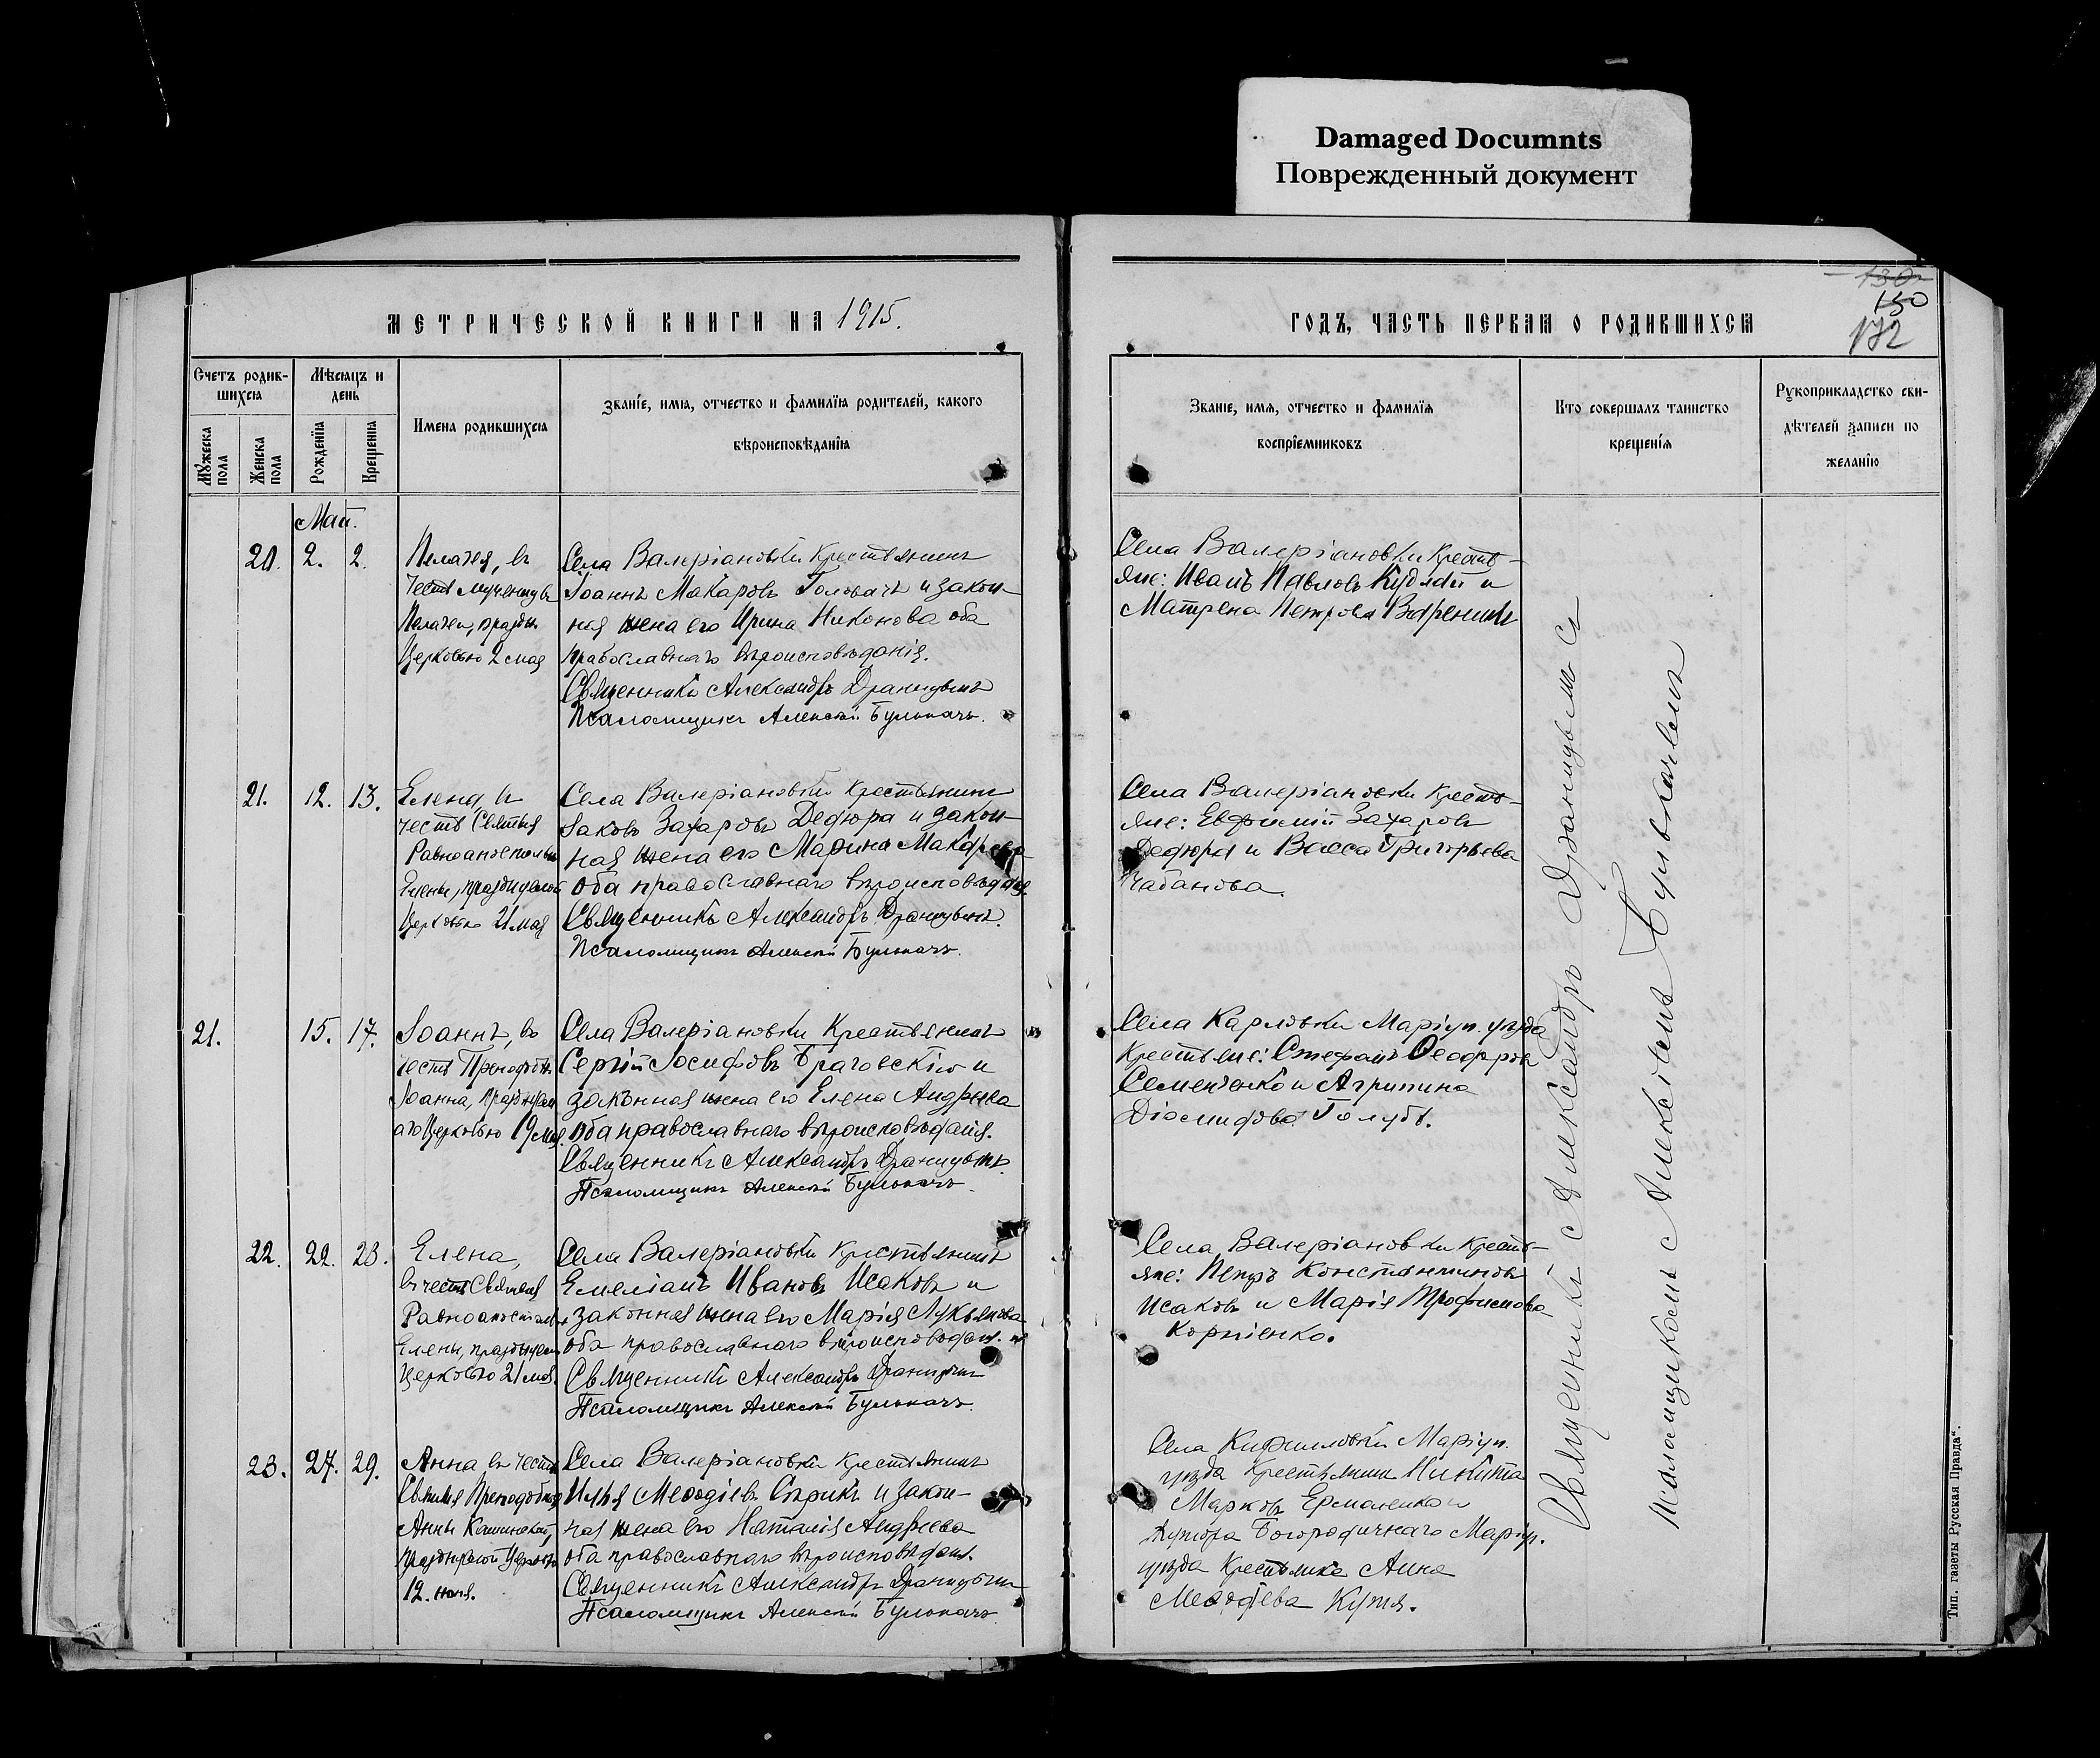 Damaged Documnts
Поврежденный документ
МЕТРИЧЕСКОЙ КНИГИ НА 1915.
Счетъ родив-
шихся
Мѣсяцъ и
день
Имена родившихся
Званіе, имя, отчество и фамилія родителей, какого
вѣроисповѣданія
Мужеска
пола
Женска
пола
Рожденія
Крещенія
Май.
20. 2. 2.
Пелагея, въ
честь мученицы
Пелагеи, праздн.
Церковью 2 мая
Села Валеріановки крестьянинъ
Іоаннъ Макаровъ Головачъ и закон-
ная жена его Ирина Никонова оба
православнаго вѣроисповѣданія.
Священникъ Александръ Драницынъ
Псаломщикъ Алексѣй Булькачъ.
21. 12. 13.
Елена, въ
честь Святыя
Равноапостольн
Елены, празднуемой
Церковью 21 мая
Села Валеріановки крестьянинъ
Іаковъ Захаровъ Дедюра и закон-
ная жена его Марина Макарова
оба православнаго вѣроисповѣданія.
Священникъ Александръ Драницынъ.
Псаломщикъ Алексѣй Булькачъ.
21. 15. 17.
Іоаннъ, въ
честь Преподобн.
Іоанна, празднуем
аго Церковью 19 мая.
Села Валеріановки крестьянинъ
Сергій Іосифовъ Браговскій и
законная жена его Елена Андреева
оба православнаго вѣроисповѣданія.
Священникъ Александръ Драницынъ.
Псаломщикъ Алексѣй Булькачъ.
22. 22. 23.
Елена,
въ честь Святыя
Равноапостольн
Елены, празднуем
Церковью 21 мая.
Села Валеріановки крестьянинъ
Емеліанъ Ивановъ Исаковъ и
законная жена его Марія Лукьянова
оба православнаго вѣроисповѣдан.
Священникъ Александръ Драницынъ
Псаломщикъ Алексѣй Булькачъ.
23. 27. 29.
Анна въ честь
Святыя Преподобныя
Анны Кашинской,
празднуемой Церковью
12. іюня.
Села Валеріановки крестьянинъ
Илья Меѳодіевъ Сѣрикъ и закон-
ная жена его Наталія Андреева
оба православнаго вѣроисповѣдан.
Священникъ Александръ Драницынъ
Псаломщикъ Алексѣй Булькачъ
ГОДЪ, ЧАСТЬ ПЕРВАЯ О РОДИВШИХСЯ
130
150
172
Званіе, имя, отчество и фамилія
воспріемниковъ
Кто совершалъ таинство
крещенія
Рукоприкладство сви-
дѣтелей записи по
желанію
Села Валеріановки кресть-
яне: Иванъ Павловъ и
Матрена Петрова
Села Валеріановки кресть-
яне: Евфимій Захаровъ
Дедюра и Васса Григорьева
Чабанова.
Села Карловки Маріуп. уѣзда
крестьяне: Стефанъ Ѳеодоровъ
Семенченко и Агрипина
Діомидова Голубъ.
Села Валеріановки кресть-
яне: Петръ Константиновъ
Исаковъ и Марія Трофимова
Корніенко.
Села Кирилловки Маріуп.
уѣзда крестьянинъ Никита
Марковъ Ермоленко и
хутора Богородичнаго Маріуп.
уѣзда крестьянка Анна
Меѳодіева Кутя.
Священникъ Александръ Драницынъ съ
псаломщикомъ Алексѣемъ Булькачемъ
Тип. газеты Русская Правда".